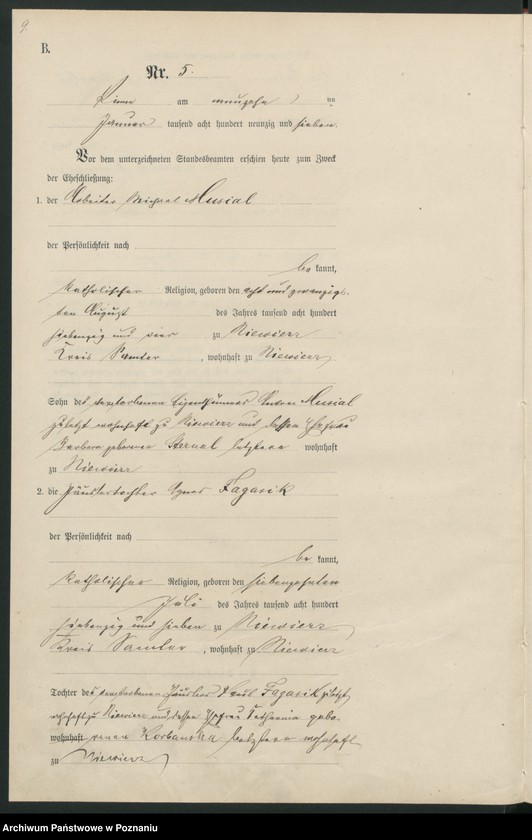 9.
B.
Nr. 5.
Pinne am neunzehn ten
Januar tausend acht hundert neunzig und sieben.
Vor dem unterzeichneten Standesbeamten erschien heute zum Zweck
der Eheschließung:
1. der Arbeiter Michael Musial
der Persönlichkeit nach
be kannt,
katholischer Religion, geboren den acht und zwanzigs-
ten August des Jahres tausend acht hundert
siebenzig und vier zu Niewierz
Kreis Samter, wohnhaft zu Niewierz
Sohn des verstorbenen Eigenthümers Musial
zuletzt wohnhaft zu Niewierz und dessen Ehefrau
Barbara geborenen Sternal letztere wohnhaft
zu Niewierz
2. die Häuslertochter Agnes Fagasik
der Persönlichkeit nach
be kannt,
katholischer Religion, geboren den siebenzehnten
Juli des Jahres tausend acht hundert
siebenzig und sieben zu Niewierz
Kreis Samter, wohnhaft zu Niewierz
Tochter des verstorbenen Häuslers Fagasik zuletzt
wohnhaft zu Niewierz und dessen Ehefrau gebo-
wohnhaft renen Korbanska letztere wohnhaft
zu Niewierz
Archiwum Państwowe w Poznaniu